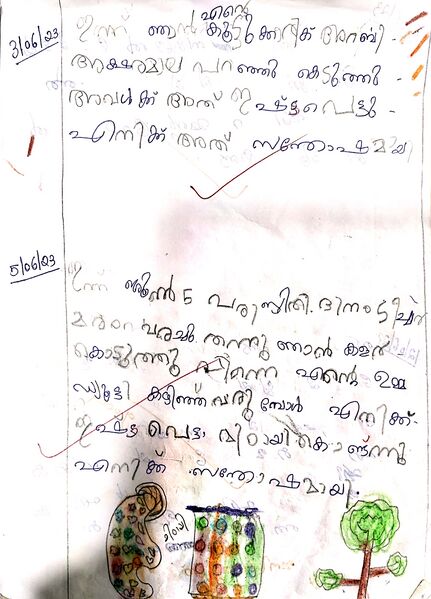 3/06/23
എന്റെ
ഇന്ന് ഞാൻ കൂട്ടുകാരിക്ക് അറബി
അക്ഷരമാല പറഞ്ഞു കെടുത്തു
അവൾക്ക് അത് ഇഷ്ട്ടപെട്ടു -
എനിക്ക് അത് സന്തോഷമായി
5/06/23
ഇന്ന് ജൂൺ 5 പരുസ്ഥിതി. ദിനം 5 ടീച്ചർ
മരം വരച്ചു. തന്നു ഞാൻ കളർ
കൊടുത്തു പിന്നെ എന്റെ ഉമ്മ
ഡ്യൂട്ടി കഴിഞ്ഞ് വരു മ്പോൾ എനിക്ക്
ഇഷ്ട്ട പെട്ട മിഠായി കൊണ്ടന്നു
എനിക്ക് സന്തോഷമായി.